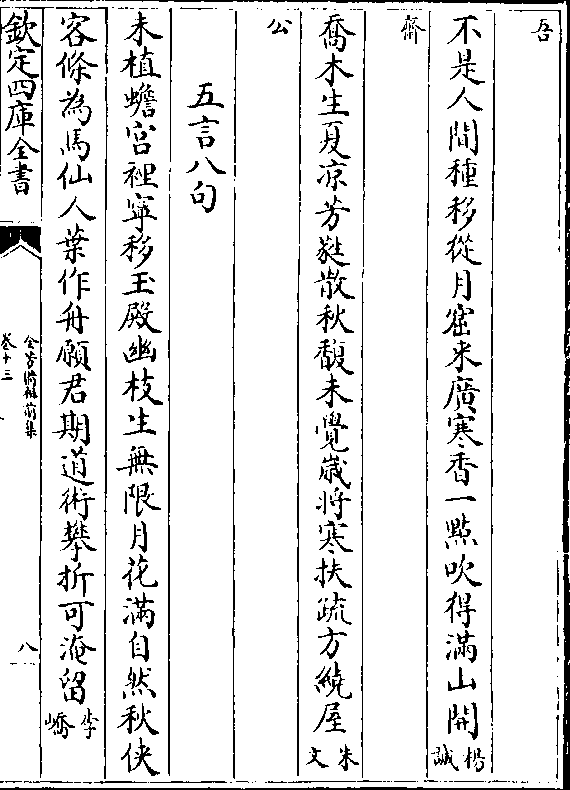 吾
不是人間種移從月窟来廣寒香一點吹得滿山開楊誠
齋
喬木生夏凉芳蕤散秋馥未覺歲将寒扶疏方繞屋朱文
公
五言八句
未植蟾宫裡寧移玉殿幽枝生無限月花滿自然秋俠
客條為馬仙人葉作舟願君期道術攀折可淹留李嶠
欽定四庫全書
全芳備祖前集
卷十三
八